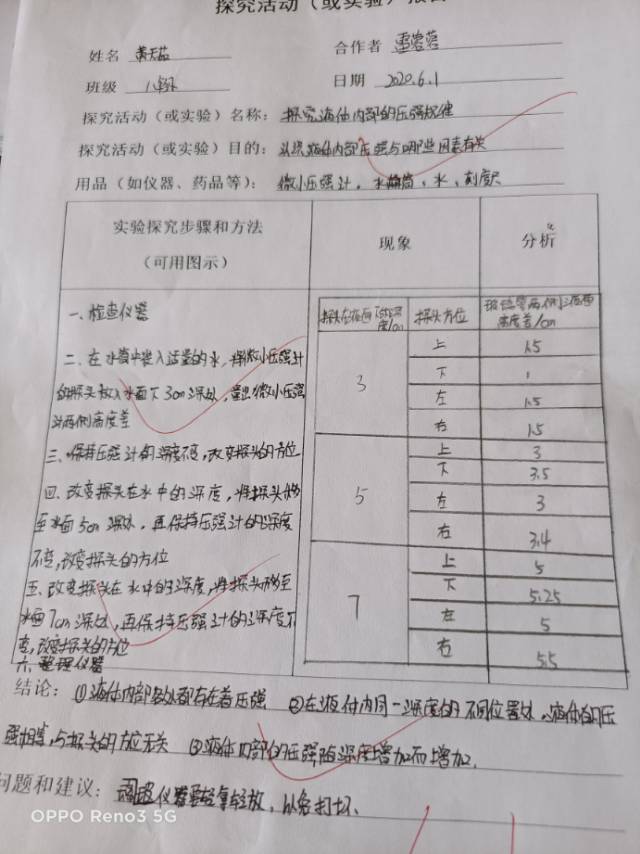 探究活动（或实验）报告
姓名 合作者
班级 日期 2020.6.1
探究活动（或实验）名称：探究液体内部的压强规律
探究活动（或实验）目的：认识液体内部压强与哪些因素有关
用品（如仪器、药品等）：微小压强计、水、刻度尺
实验探究步骤和方法
（可用图示）
现象
分析
一、检查仪器
二、在水槽中装入适量的水，将微小压强计
的探头放入水面下3cm深处，微小压强
计两侧高度差
三、保持压强计的深度不变，改变探头的方位
四、改变探头在水中的深度，将探头移
至水面5cm深处，再保持压强计的深度
不变，改变探头的方位
五、改变探头在水中的深度，将探头移至
水面7cm深处，再保持压强计的深度不
变，改变探头的方位
六、整理仪器
探头方位
高度差/cm
3 上 1.5
下 1
左 1.5
右 1.5
5 上 3
下 3.5
左 3
右 3.4
7 上 5
下 5.25
左 5
右 5.5
结论：①液体内部各处都存在着压强 ②在液体内同一深度的不同位置处，液体的压
强相等，与探头的方位无关 ③液体内部的压强随深度增加而增加。
问题和建议：仪器要轻拿轻放，以免打坏、
OPPO Reno3 5G